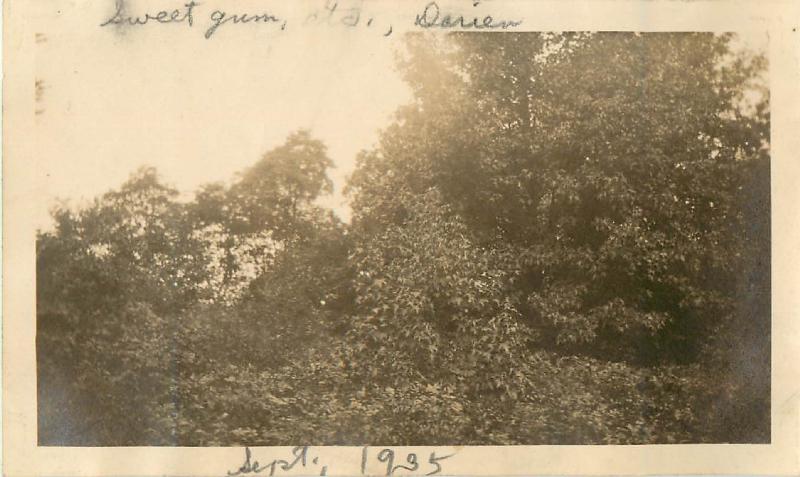 Sweet gum, etc., Darien
Sept., 1935